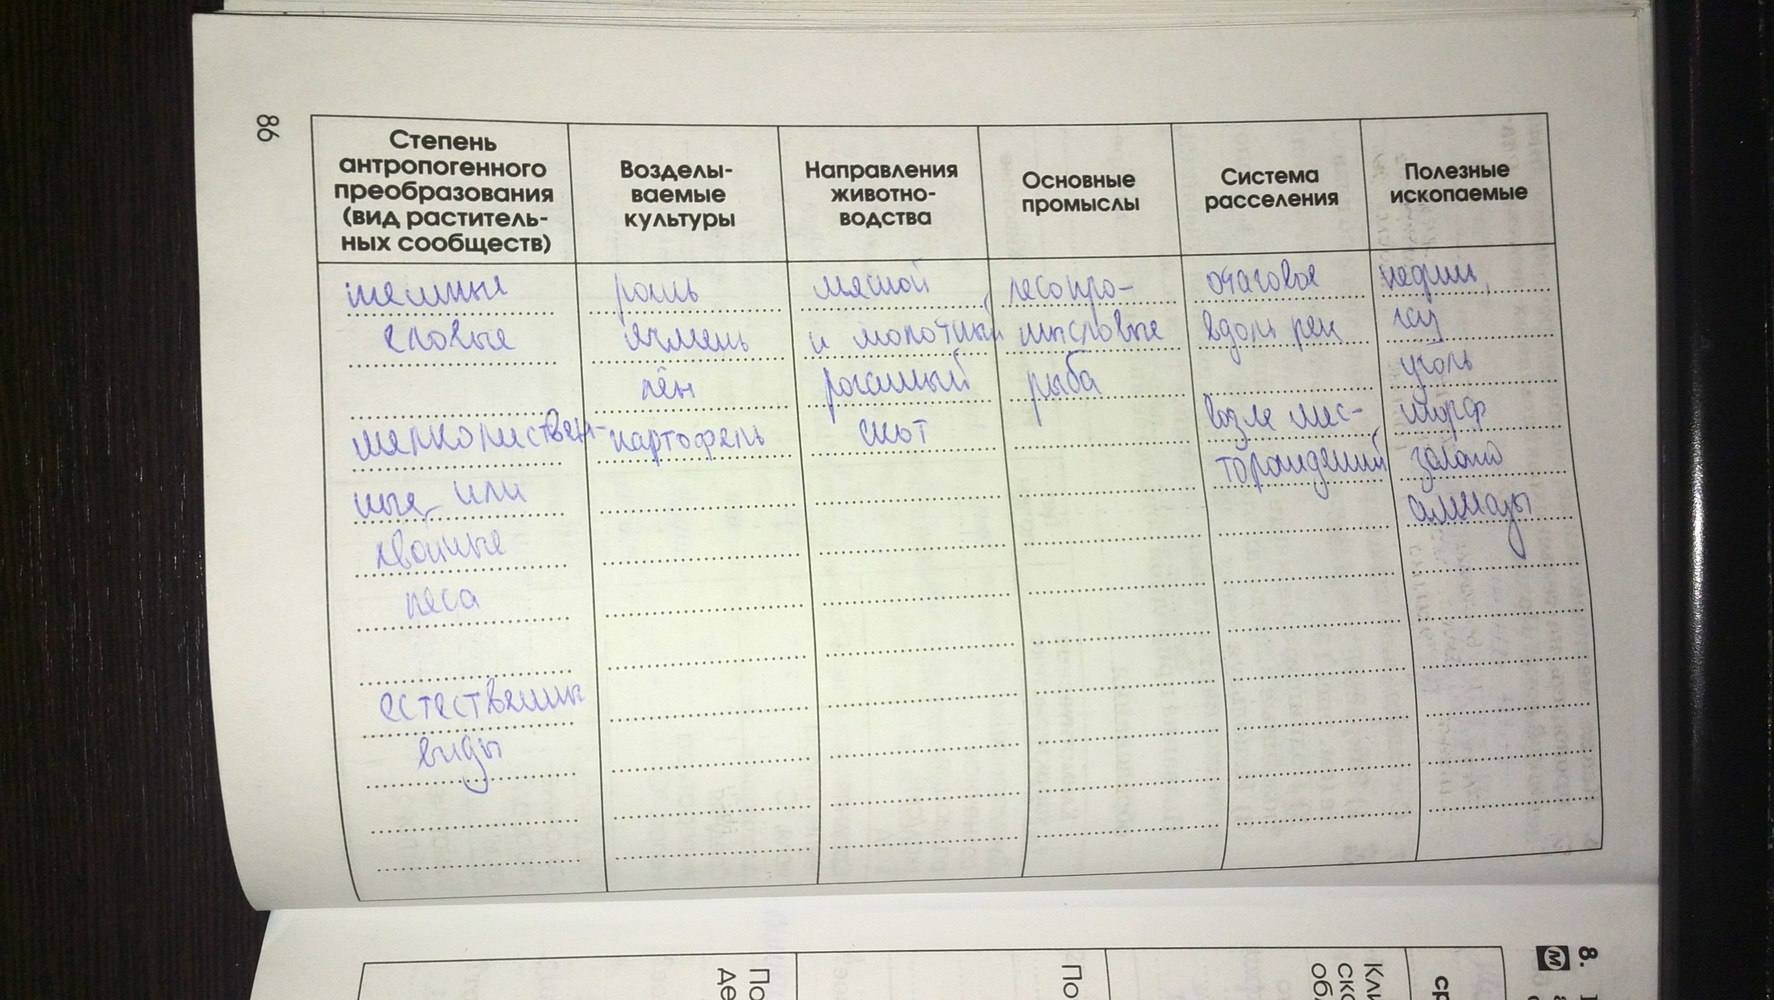 86
Степень
антропогенного
преобразования
(вид раститель-
ных сообществ)
Возделы-
ваемые
культуры
Направления
животно-
водства
Основные
промыслы
Система
расселения
Полезные
ископаемые
еловые
мелколиствен-
ные или
хвойные
леса
естественные
виды
рожь
ячмень
лён
картофель
мясной
и молочный
рогатый
скот
лесопро-
мысловые
рыба
очаговое
вдоль рек
возле мес-
торождений
нефть,
газ
уголь
торф
золото
алмазы
8.
м
По
По